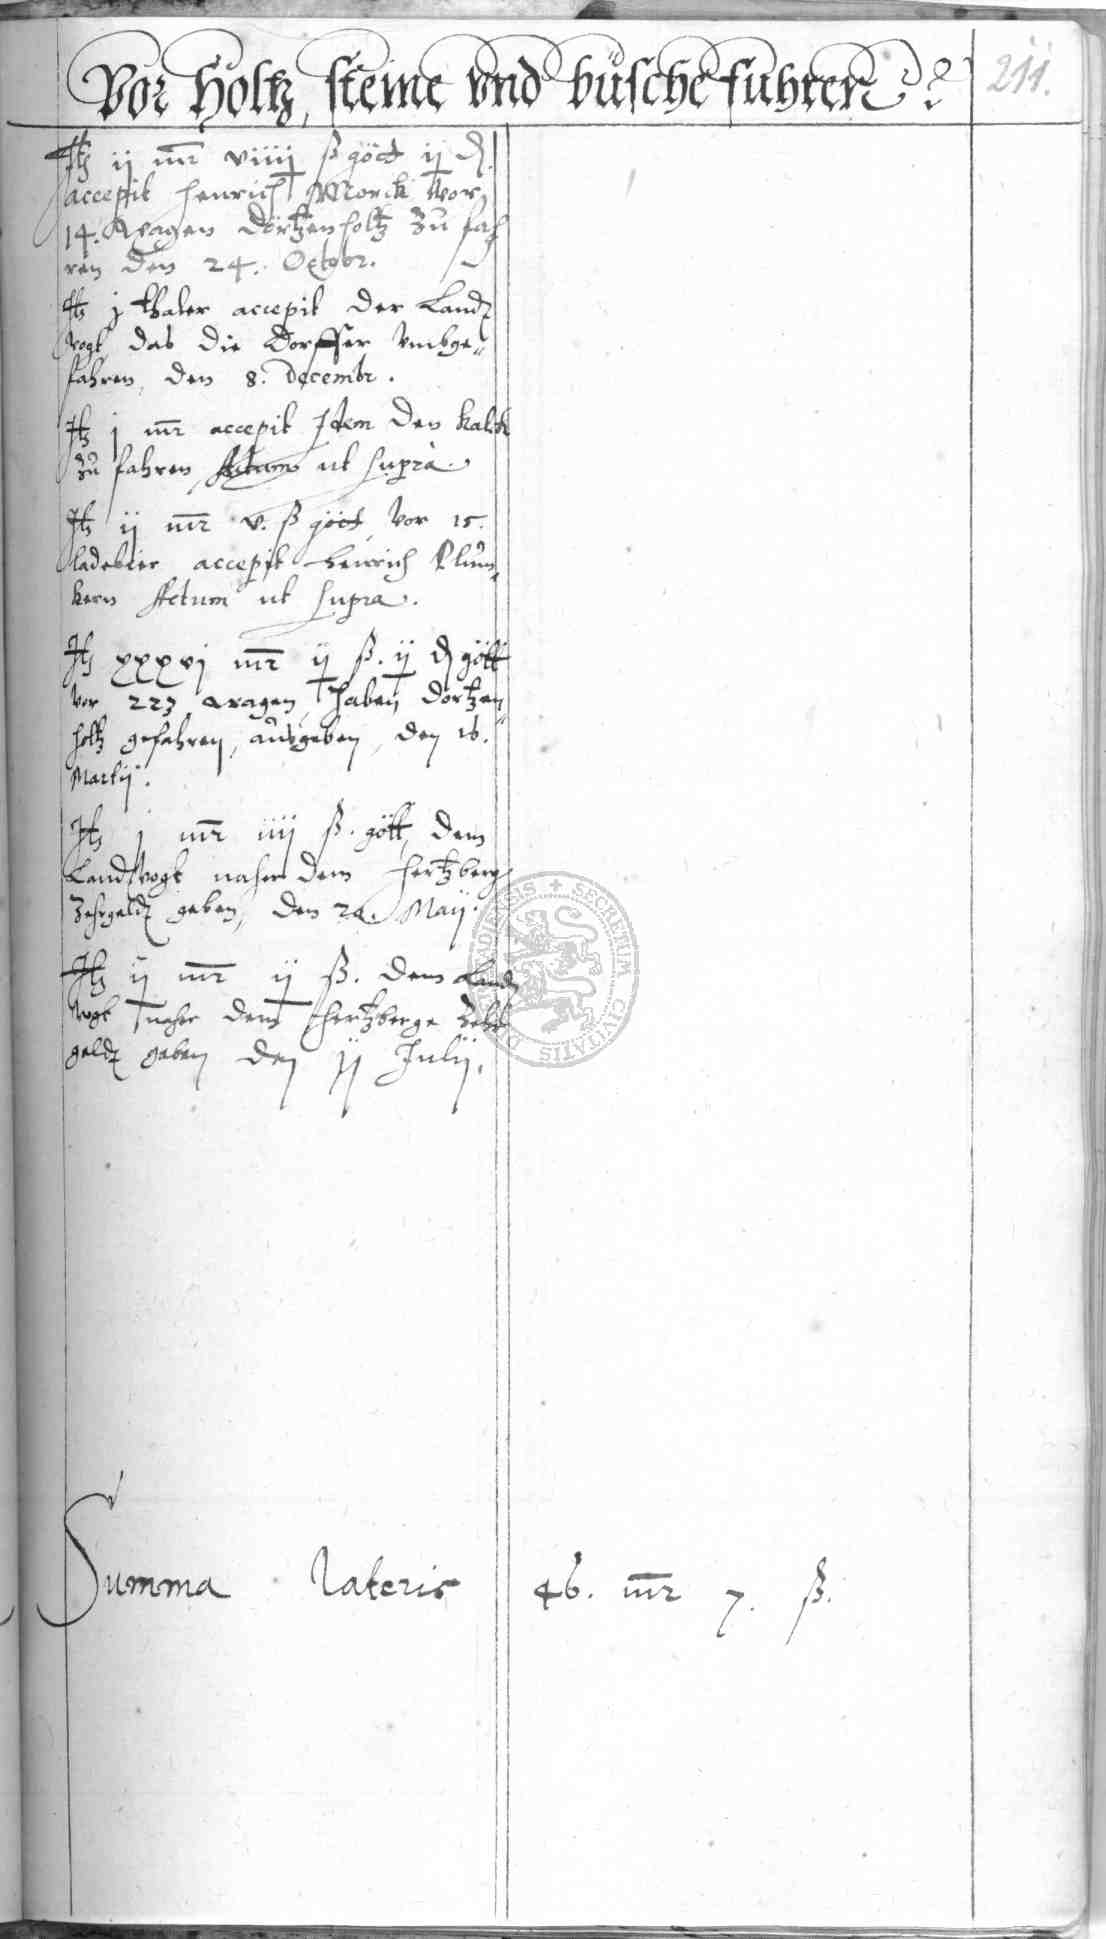 Vor Holtz, steine vnd büsche fuhren
211.
Itz ij mr viiij ß gött ij d.
accepit Henrich Morick vor
14. Wagen Dörtzenholtz zu fah
ren den 24. Octobr.
Itz j thaler accepit der Landt
vogt, das die Dorffer vmbge„
fahren, den 8. decembr.
Itz j mr accepit Idem den Kalck
zu fahren Actum ut supra.
Itz ij mr v. ß gött vor 15.
ladebier accepit Henrich Plum„
kern Actum ut supra.
Itz xxxvj mr ij ß. ij d gött
vor 223 wagen, haben dortzen„
holtz gefahren, ausgeben, den 16.
Martij.
Itz j mr iiij ß. gött, dem
Landtvogt naher dem Hertzberg
Zehrgeldt geben, den 24. Maij.
Itz ij mr ij ß. dem Landt
vogt naher dem Hertzberge Zehr
geldt geben den ij Julij.
SECRETUM CIVITATIS
Summa lateris 46. mr 7. ß.